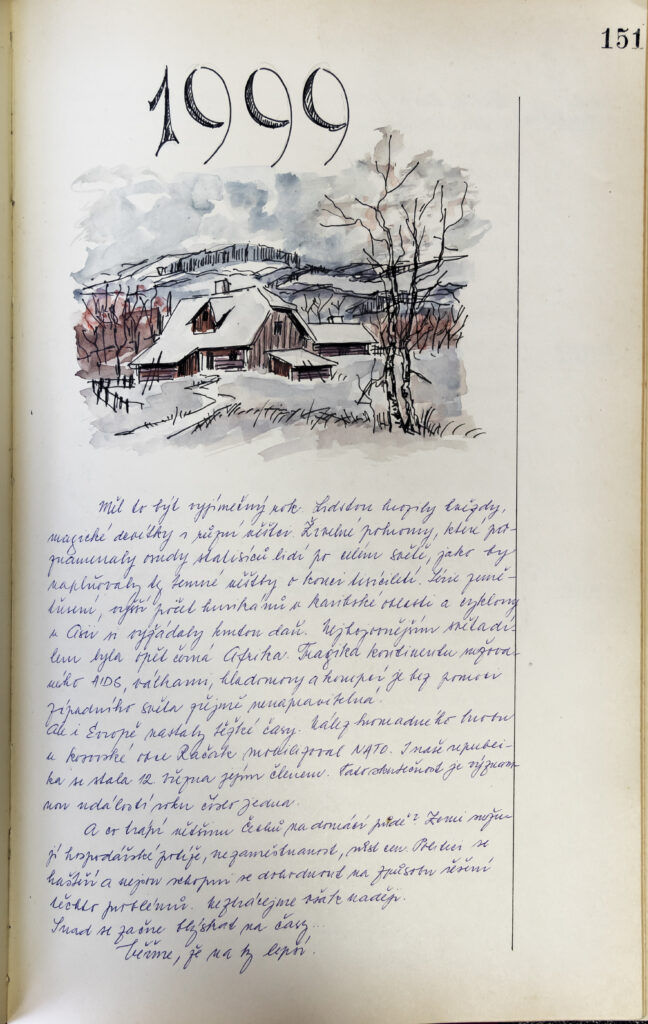 151
1999
Měl to být vyjímečný rok. Lidstvu hrozily hvězdy,
magické devítky i různí věštci. Živelné pohromy, které po-
znamenaly osudy statisíců lidí po celém světě, jako by
naplňovaly ty temné věštby o konci tisíciletí. Série země-
třesení, vyšší počet hurikánů v Karibské oblasti a cyklony
v Asii si vyžádaly krutou daň. Nejbojovnějším světadí-
lem byla opět černá Afrika. Tragika kontinentu sužova-
ného AIDS, válkami, hladomory a korupcí je bez pomoci
západního světa zřejmě nenapravitelná.
Ale i Evropě nastaly těžké časy. Nález hromadného hrobu
u kosovské obce Račak mobilizoval NATO. I naše republi-
ka se stala 12. března jejím členem. Tato skutečnost je význam-
nou událostí roku číslo jedna.
A co trápí většinu Čechů na domácí půdě? Zemi sužu-
jí hospodářské potíže, nezaměstnanost, růst cen. Politici se
haštěří a nejsou schopni se dohodnout na způsobu řešení
těchto problémů. Neztrácejme však naději.
Snad se začne blýskat na časy...
Věřme, že na ty lepší.